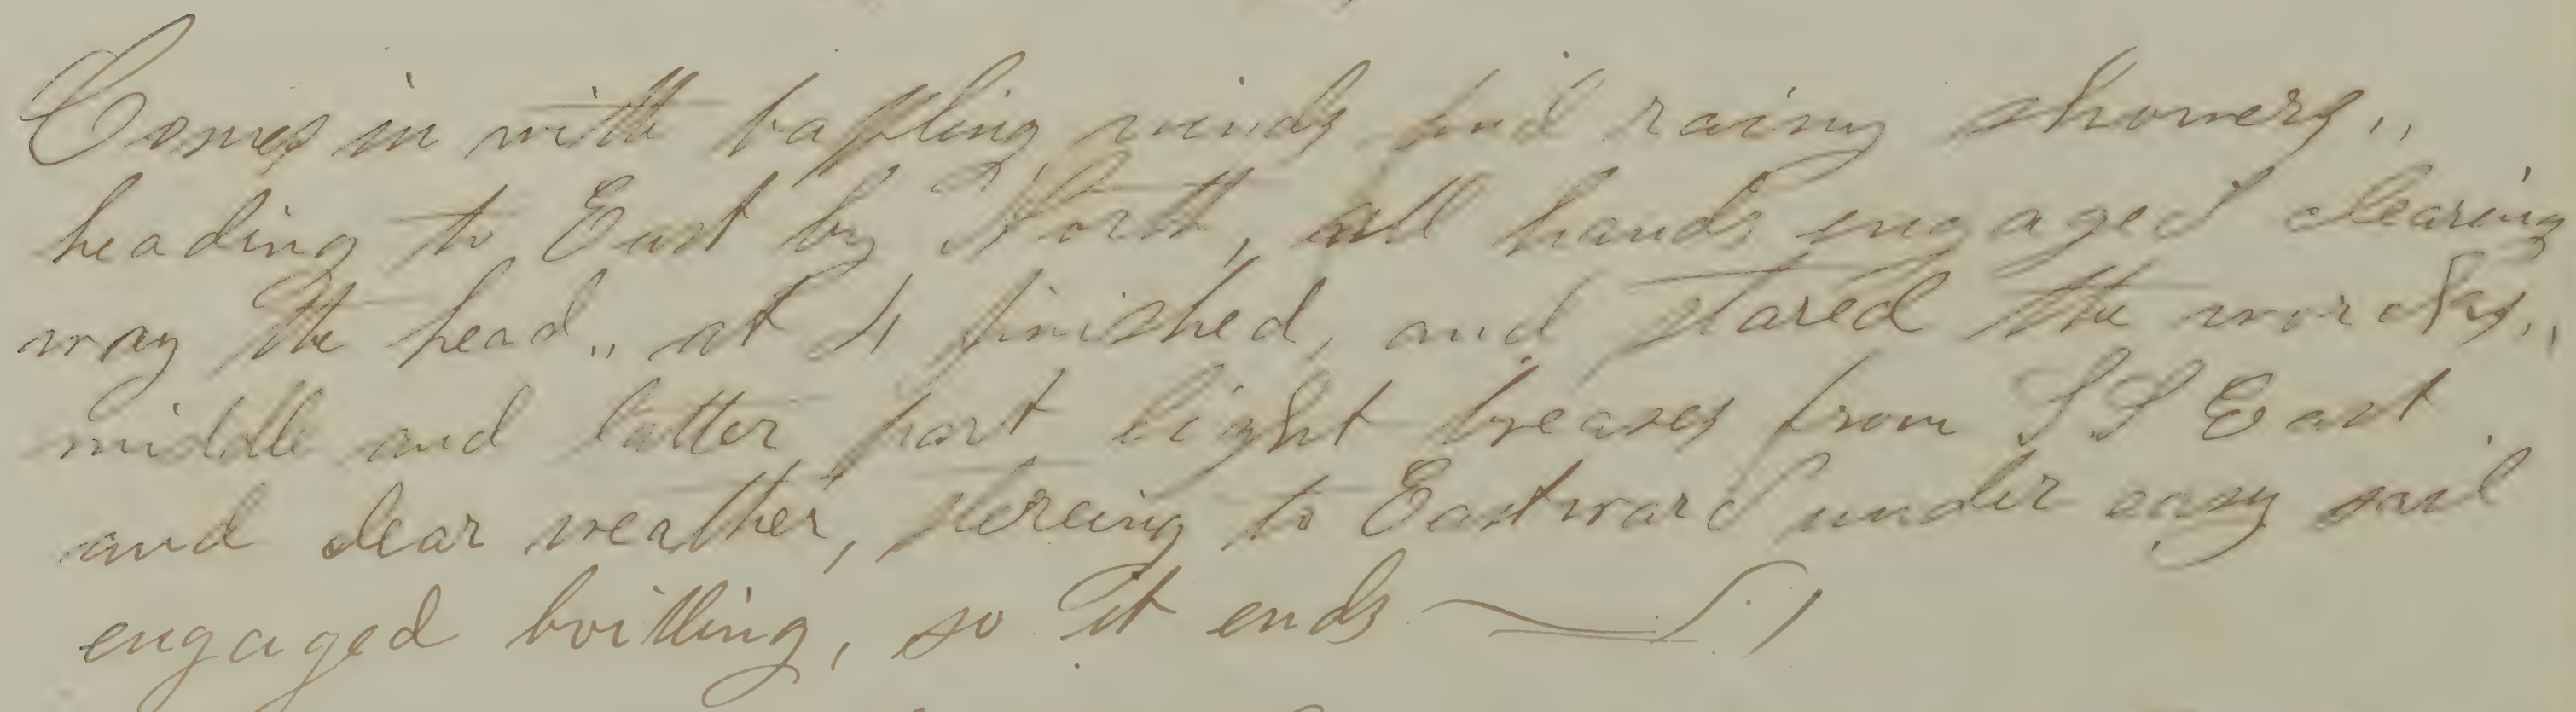 Comes in with bafling winds and rainy showers,,
heading to East by North, all hands engaged clearing
way the head,, at 4 finished, and stared the works,,
middle and latter part light breases from S S East
and clear weather, stereing to Eastward under easy sail
engaged boilling, so it ends